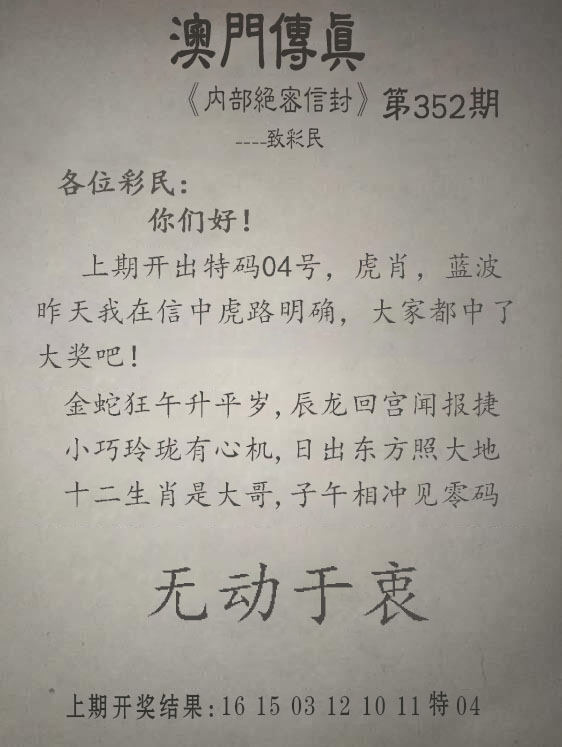 澳門傳眞
《内部絕密信封》第352期
----致彩民
各位彩民：
你们好！
上期开出特码04号，虎肖，蓝波
昨天我在信中虎路明确，大家都中了
大奖吧！
金蛇狂午升平岁,辰龙回宫闻报捷
小巧玲珑有心机,日出东方照大地
十二生肖是大哥,子午相冲见零码
无动于衷
上期开奖结果：16 15 03 12 10 11 特 04